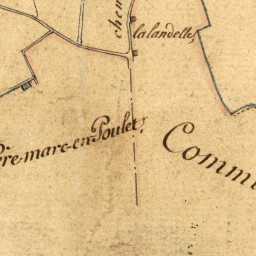 chem
lalandelle,
ère-mare-en-Poulet,
Commu